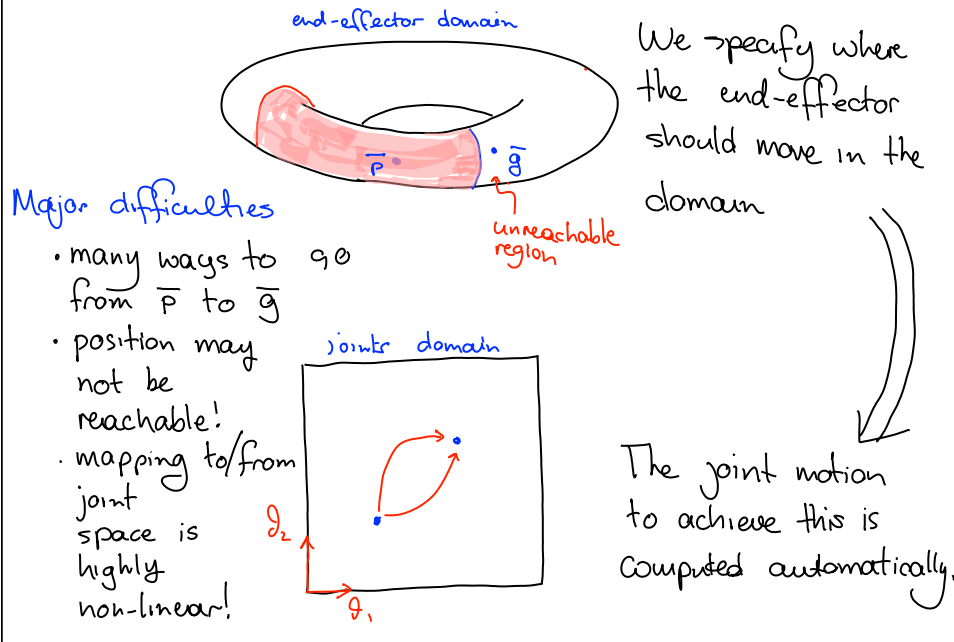 end-effector domain
We specify where
the end-effector
should move in the
domain
p̅
g̅
unreachable
region
Major difficulties
• many ways to go
from p̅ to g̅
• position may
not be
reachable!
• mapping to/from
joint
space is
highly
non-linear!
joints domain
ϑ₂
ϑ₁
The joint motion
to achieve this is
computed automatically.